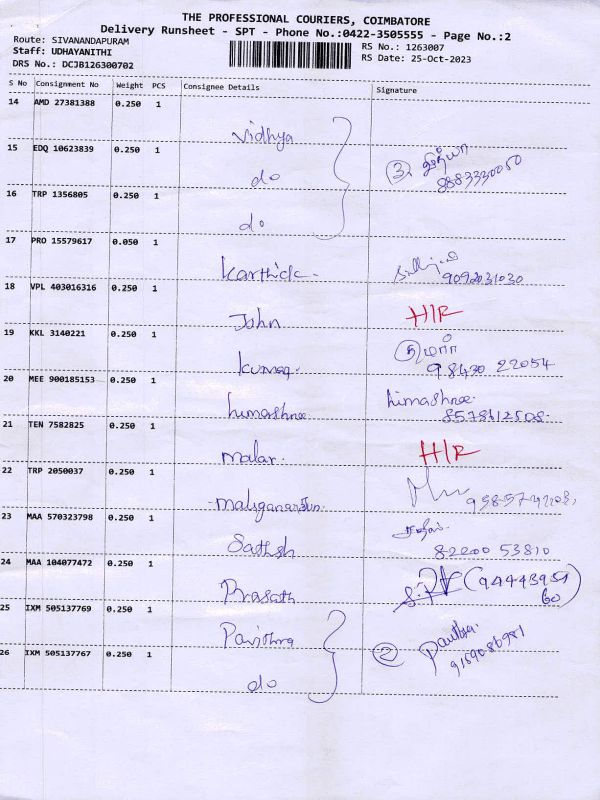 THE PROFESSIONAL COURIERS, COIMBATORE
Delivery Runsheet - SPT - Phone No.:0422-3505555 - Page No.:2
Route: SIVANANDAPURAM
Staff: UDHAYANITHI
RS No.: 1263007
DRS No.: DCJB126300702
RS Date: 25-Oct-2023
S No Consignment No Weight PCS Consignee Details Signature
14 AMD 27381388 0.250 1
Vidhya
15 EDQ 10623839 0.250 1
do
3
8883330050
16 TRP 1356805 0.250 1
do
17 PRO 15579617 0.050 1
Karthick.
9092031030
18 VPL 403016316 0.250 1
John
H/R
19 KKL 3140221 0.250 1
Kumar
98430 22054
20 MEE 900185153 0.250 1
himashree.
himashree
8578612508.
21 TEN 7582825 0.250 1
malar.
H/R
22 TRP 2050037 0.250 1
23 MAA 570323798 0.250 1
Sathish
82200 53810
24 MAA 104077472 0.250 1
Prasath
(9444395160)
25 IXM 505137769 0.250 1
2
26 IXM 505137767 0.250 1
do